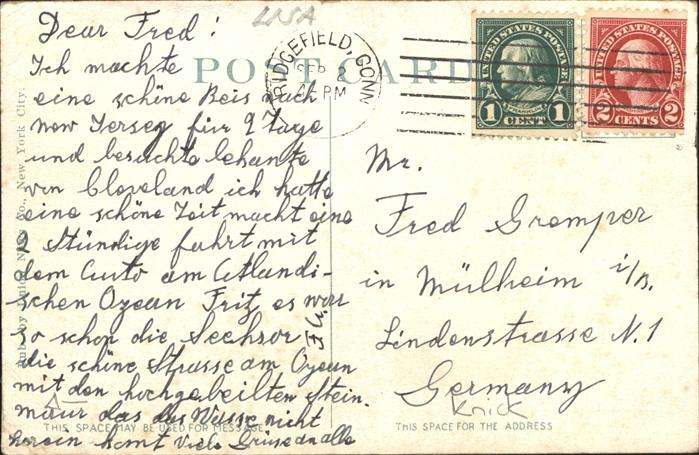 USA
Dear Fred :
Ich machte
eine schöne Reis nach
New Yersey für 2 Tage
und besuchte bekante
von Cleveland ich hatte
eine schöne Zeit macht eine
2 Stündige fahrt mit
dem Auto am Atlandi-
schen Ozean Fritz es war
so schon die Seehsor
die schöne Strasse am Ozean
mit den hochgebeilten stein.
mauer das das Wasser nicht
herein komt Viele Grüse an alle
POST CARD
RIDGEFIELD, CONN
PM
UNITED STATES POSTAGE
FRANKLIN
1 CENT 1
UNITED STATES POSTAGE
2 CENTS 2
Mr.
Fred Gremper
in Mülheim i/B.
Lindenstrasse N. 1
Germany
Knick
New York City.
THIS SPACE MAY BE USED FOR MESSAGE
THIS SPACE FOR THE ADDRESS